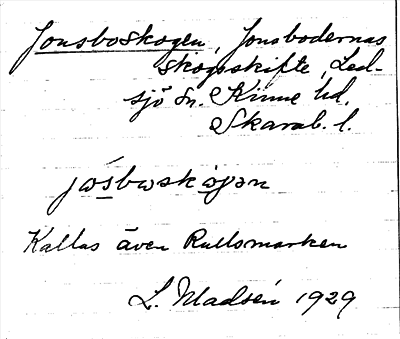 Jonsboskogen, Jonsbodernas
skogsskifte, Led-
sjö sn. Kinne hd.
Skarab. l.
jåsbɷskåɡən
Kallas även Rullsmarken
L. Madsén 1929